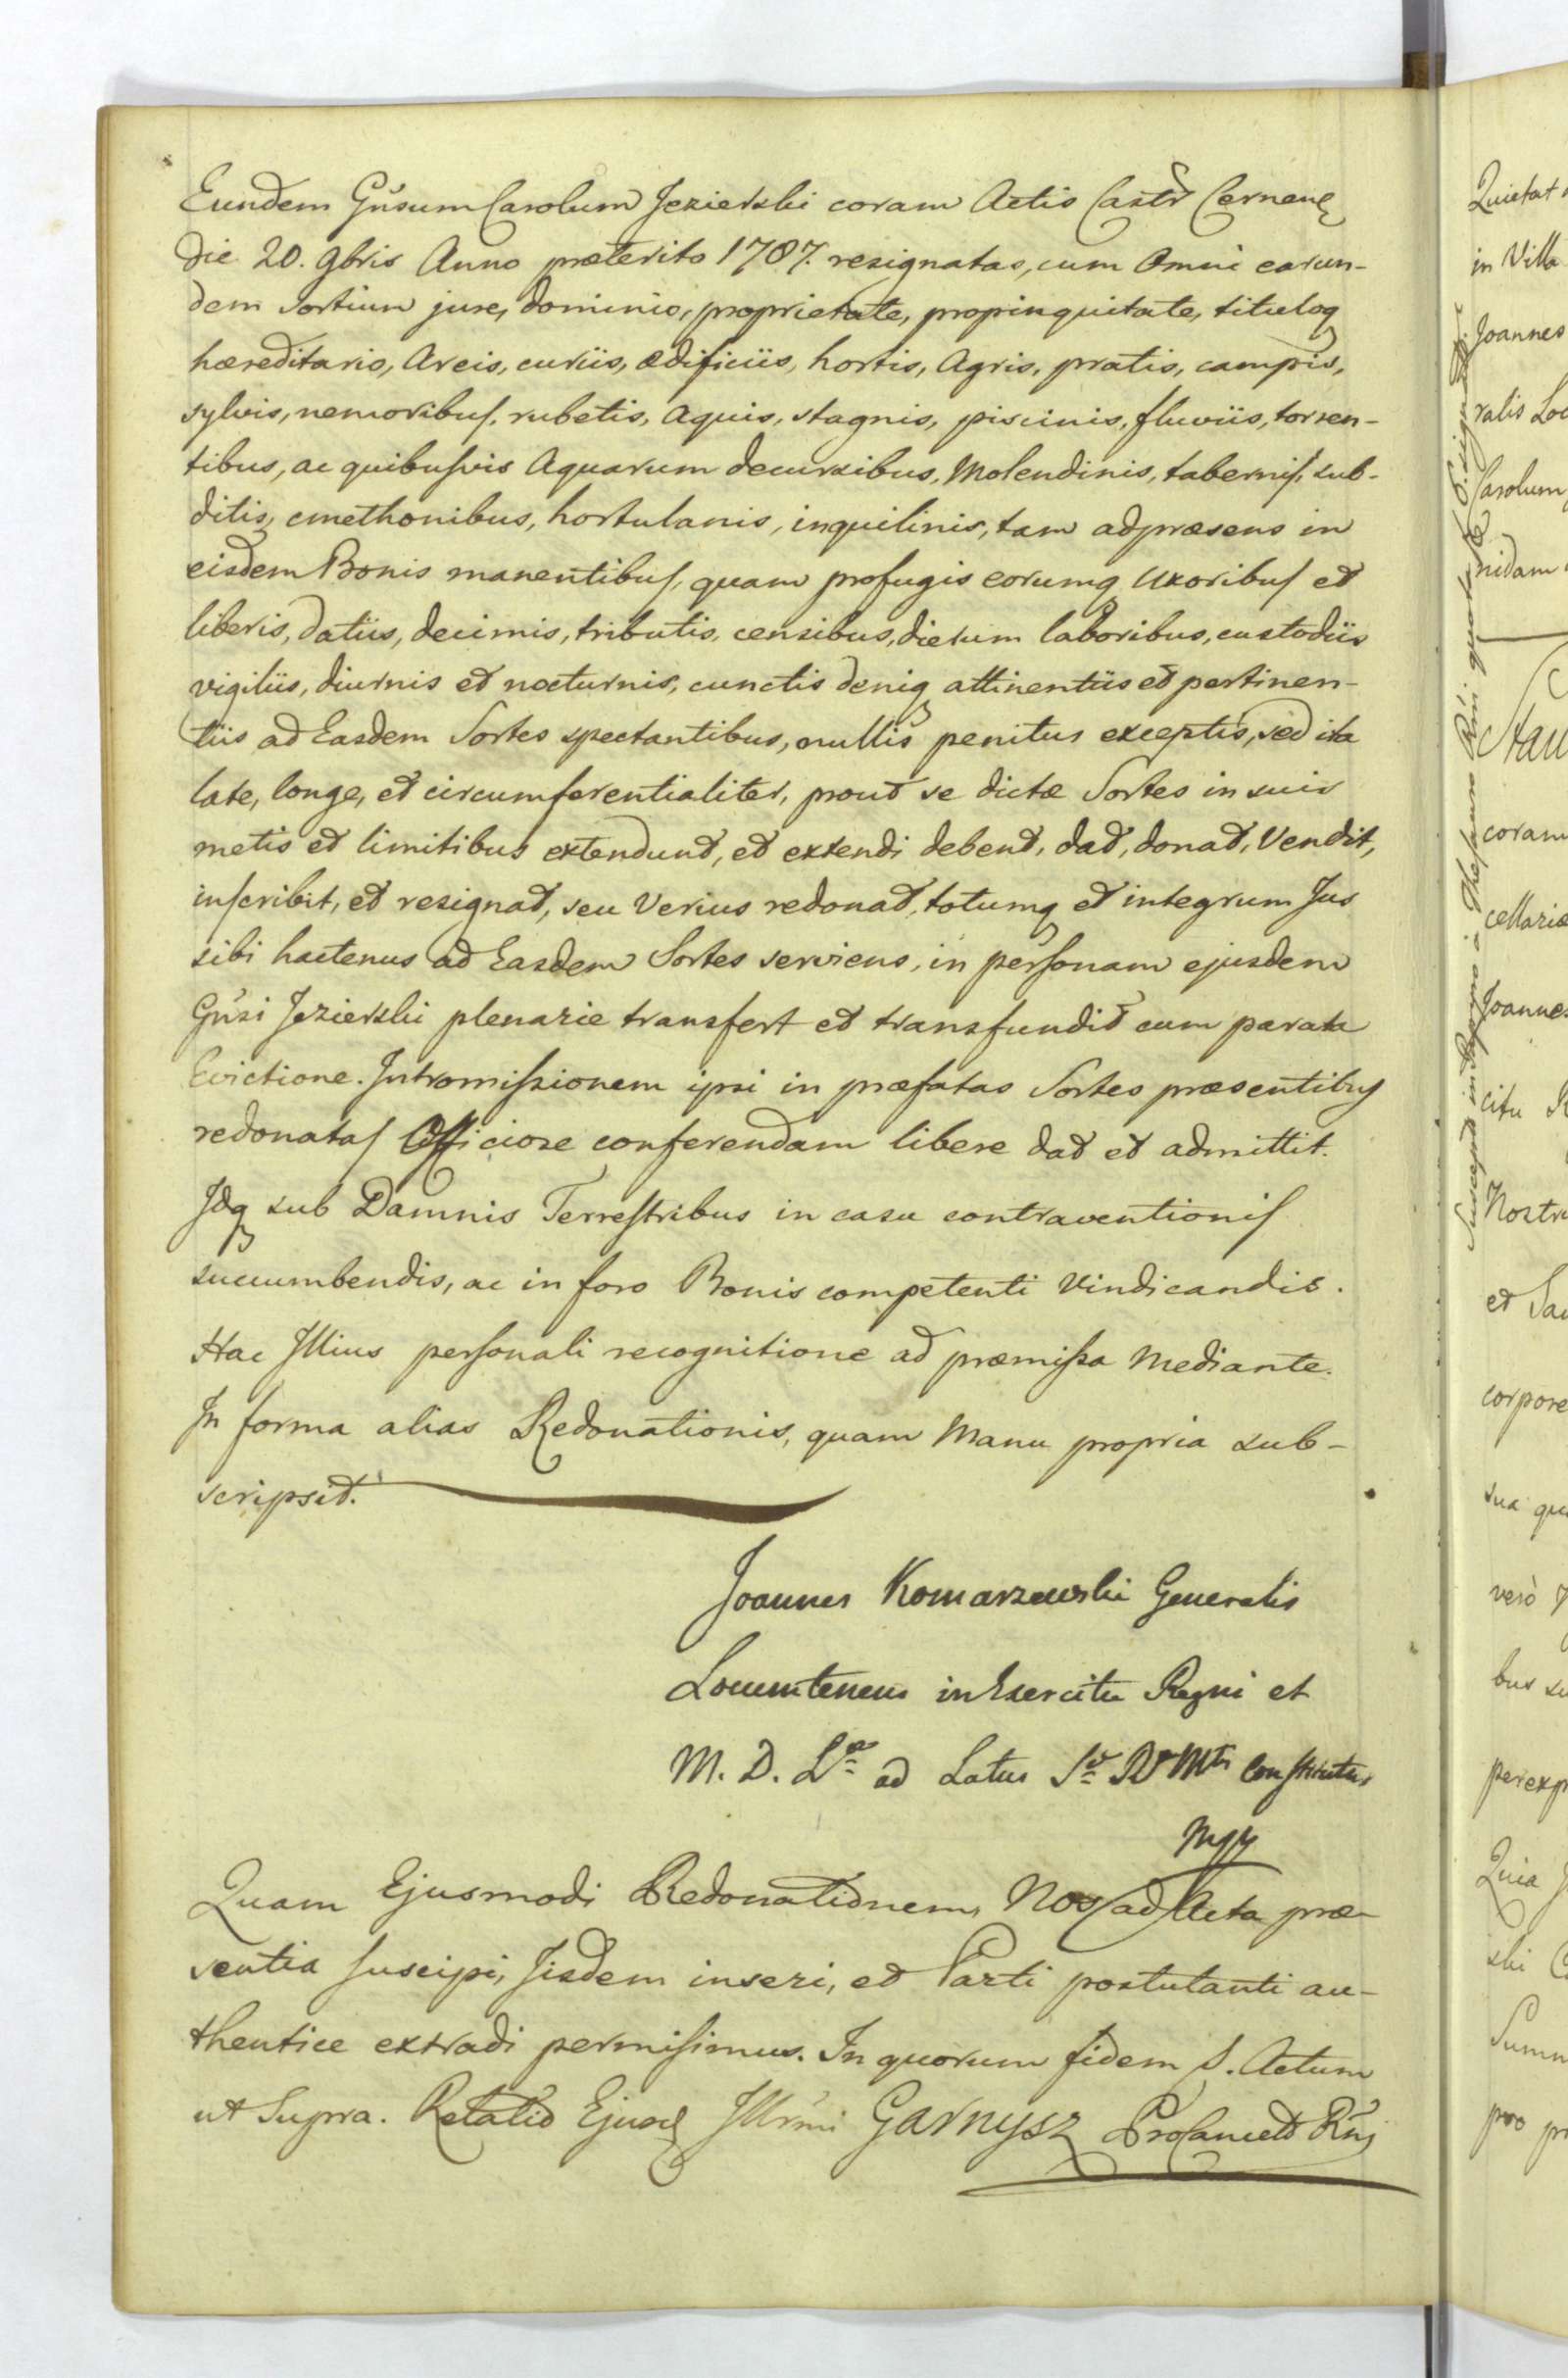 Eundem Gŭsum Carolum Jezierski coram Actis Castr Cernenę
die 20. 9bris Anno præterito 1787. resignatas, cum Omni earun-
dem Sortium jure, dominio, proprietate, propinquitate, tituloq
hæreditario, Areis, curiis, ædificiis, hortis, Agris, pratis, campis,
sylvis, nemoribus, rubetis, Aquis, stagnis, piscinis, fluviis, torren-
tibus, ac quibusvis Aquarum decursibus, Molendinis, tabernis, sub-
ditis, cmethonibus, hortulanis, inquilinis, tam adpræsens in
eisdem Bonis manentibus, quam profugis eorumq Uxoribus et
liberis, datiis, decimis, tributis, censibus, dierum laboribus, custodiis
vigiliis, diurnis et nocturnis, cunctis deniq attinentiis et pertinen-
tiis ad Easdem Sortes spectantibus, nullis penitus exceptis, sed ita
late, longe, et circumferentialiter, prout se dictæ Sortes in suis
metis et limitibus extendunt, et extendi debent, dat, donat, Vendit,
inscribit, et resignat, seu Verius redonat, totumq et integrum Jus
sibi hactenus ad Easdem Sortes serviens, in personam ejusdem
Gŭsi Jezierski plenarie transfert et transfundit cum parata
Evictione. Intromissionem ipsi in præfatas Sortes præsentibus
redonatas Officiose conferendam libere dat et admittit.
Idq sub Damnis Terrestribus in casu contraventionis
succumbendis, ac in foro Bonis competenti Vindicandis.
Hac Illius personali recognitione ad præmissa Mediante.
In forma alias Redonationis, quam Manu propria sub-
scripsit.
Joannes Komarzewski Generalis
Locumtenens in Exercitu Regni et
M. D. Læ ad Latus Sæ Ræ Mtis Constitutus
Mpp
Quam Ejusmodi Redonationem, Nos ad Acta præ-
sentia suscipi, Iisdem inseri, et Parti postulanti au-
thentice extradi permisimus. In quorum fidem S. Actum
ut Supra. Relatio Ejusd Illrmi Garnysz ProCancell Rñi
Quietat
in Villa
Joannes
ralis Loc
Carolum
nidam
Stau
coram
cellariæ
Joannes
citu R
Nostr
et Sac
corpore
sua qu
verò
bus su
perexp
Quia J
ski C
Summ
pro pr